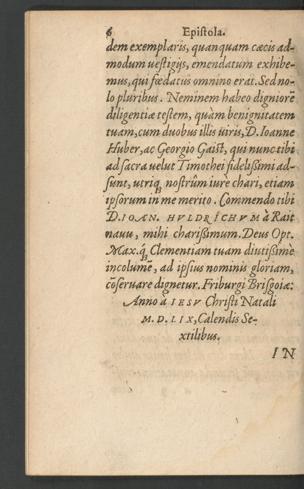 6 Epistola.
dem exemplaris, quanquam cæcis ad-
modum uestigijs, emendatum exhibe-
mus, qui fœdatus omnino erat. Sed no-
lo pluribus. Neminem habeo digniorē
diligentiæ testem, quàm benignitatem
tuam, cum duobus illis uiris, D. Ioanne
Huber, ac Georgio Gaist, qui nunc tibi
ad sacra uelut Timothei fidelissimi ad-
sunt, utriq; nostrûm iurè chari, etiam
ipsorum in me merito. Commendo tibi
D. IOAN. HVLDRICHVM à Rait
nauu, mihi charissimum. Deus Opt.
Max. q́; Clementiam tuam diutissimè
incolumē, ad ipsius nominis gloriam,
cōseruare dignetur. Friburgi Brisgoiæ:
Anno à IESV Christi Natali
M. D. LIX, Calendis Se-
xtilibus.
IN